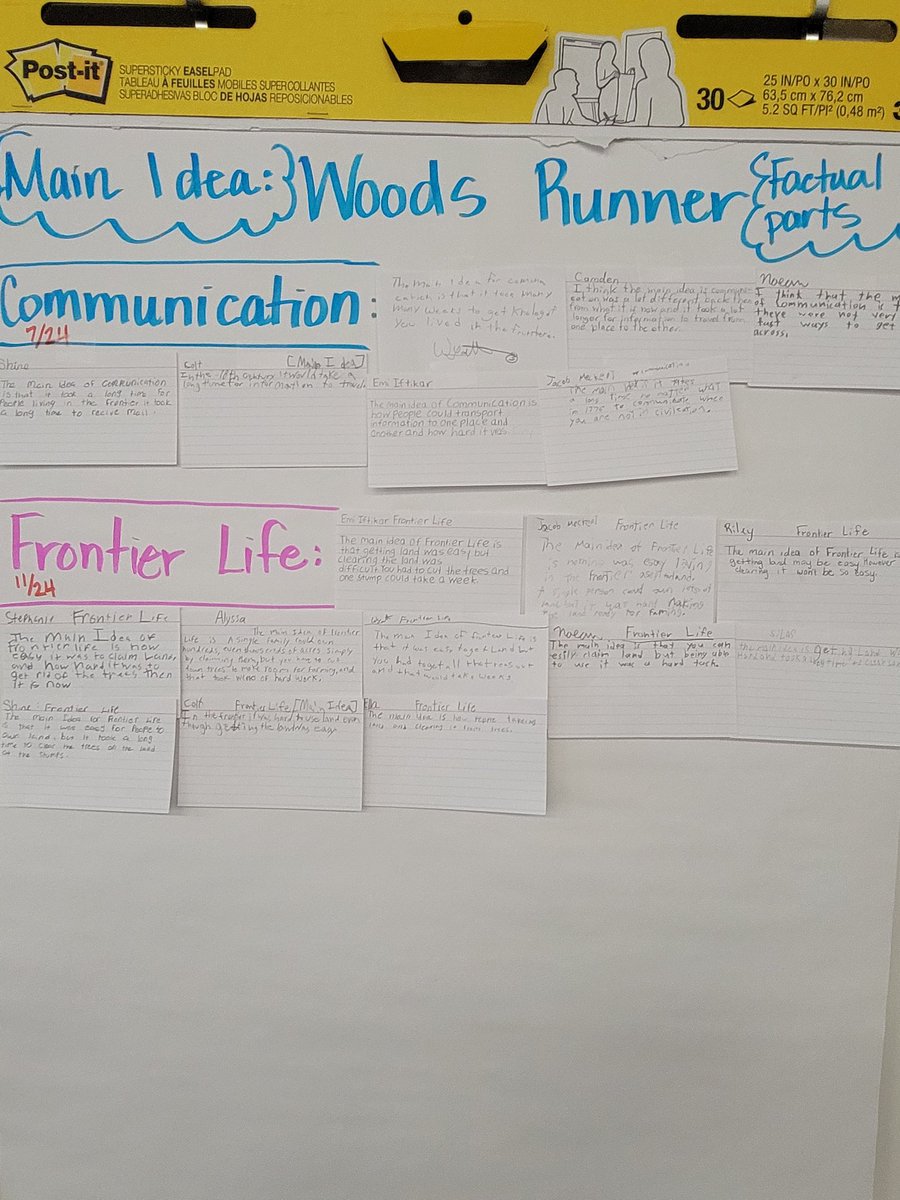 Post-it
SUPERSTICKY EASELPAD
TABLEAU À FEUILLES MOBILES SUPERCOLLANTES
SUPERADHESIVAS BLOC DE HOJAS REPOSICIONABLES
30
25 IN/PO x 30 IN/PO
63,5 cm x 76,2 cm
5.2 SQ FT/PI² (0,48 m²)
{Main Idea:} Woods Runner {Factual
{parts
Communication:
7/24
The main idea for commu
cation is that it took many
many weeks to get
you lived in the
Wyatt
Camden
I think the main idea is communi-
cation was a lot different back then
from what it is now and it took a lot
longer for information to travel from
one place to the other.
Noean
I think that the m
of Communication is t
there were not very
fast ways to get
across.
Shine
The main idea of communication
is that it took a long time for
People living in the Frontier it took
a long time to recive mail.
Colt [Main Idea]
In the century it would take a
long time for information to travel
Emi Iftikar
The main idea of Communication is
how people could transport
information to one place and
another and how hard it was.
Jacob
The main idea is takes
a long time no matter what
in 1776 to communicate where
you are not in civilization.
Frontier Life:
11/24
Emi Iftikar Frontier Life
The main idea of Frontier Life is
that getting land was easy but
clearing the land was
difficult. You had to cut the trees and
one stump could take a week.
Jacob Frontier Life
The Main idea of Frontier Life
is was easy
in the frontier
single person could own
but it was hard making
the land ready for farming.
Riley Frontier Life
The main idea of Frontier Life is
getting land may be easy, however
clearing it wont be so easy.
Stephanie Frontier Life
The Main Idea of
Frontier life is how
easy it was to claim Land,
and how hard it was to
get rid of the trees then
it is now
Alyssa
The main idea of Frontier
Life is a single family could own
hundreds, even thousands of acres simply
by claiming them, but you have to cut
down trees to make rooms for farming, and
that took of hard work.
Frontier Life
The main Idea of Life is
that it was easy to get Land but
you had to get all the trees out
and that would take weeks
Noean Frontier Life
The main idea is that you can
easily claim land but being able
to use it was a hard task.
SILAS
the main idea is get
Shine: Frontier Life
The main Idea for Frontier Life
is that it was easy for People to
own land, but it took a long
time to clear the trees on the land
or the stumps.
Colt Frontier Life [Main Idea]
In the frontier it was hard to use land even
though getting the land was easy
Ella Frontier Life
The main idea is how people
land and clearing it from trees.